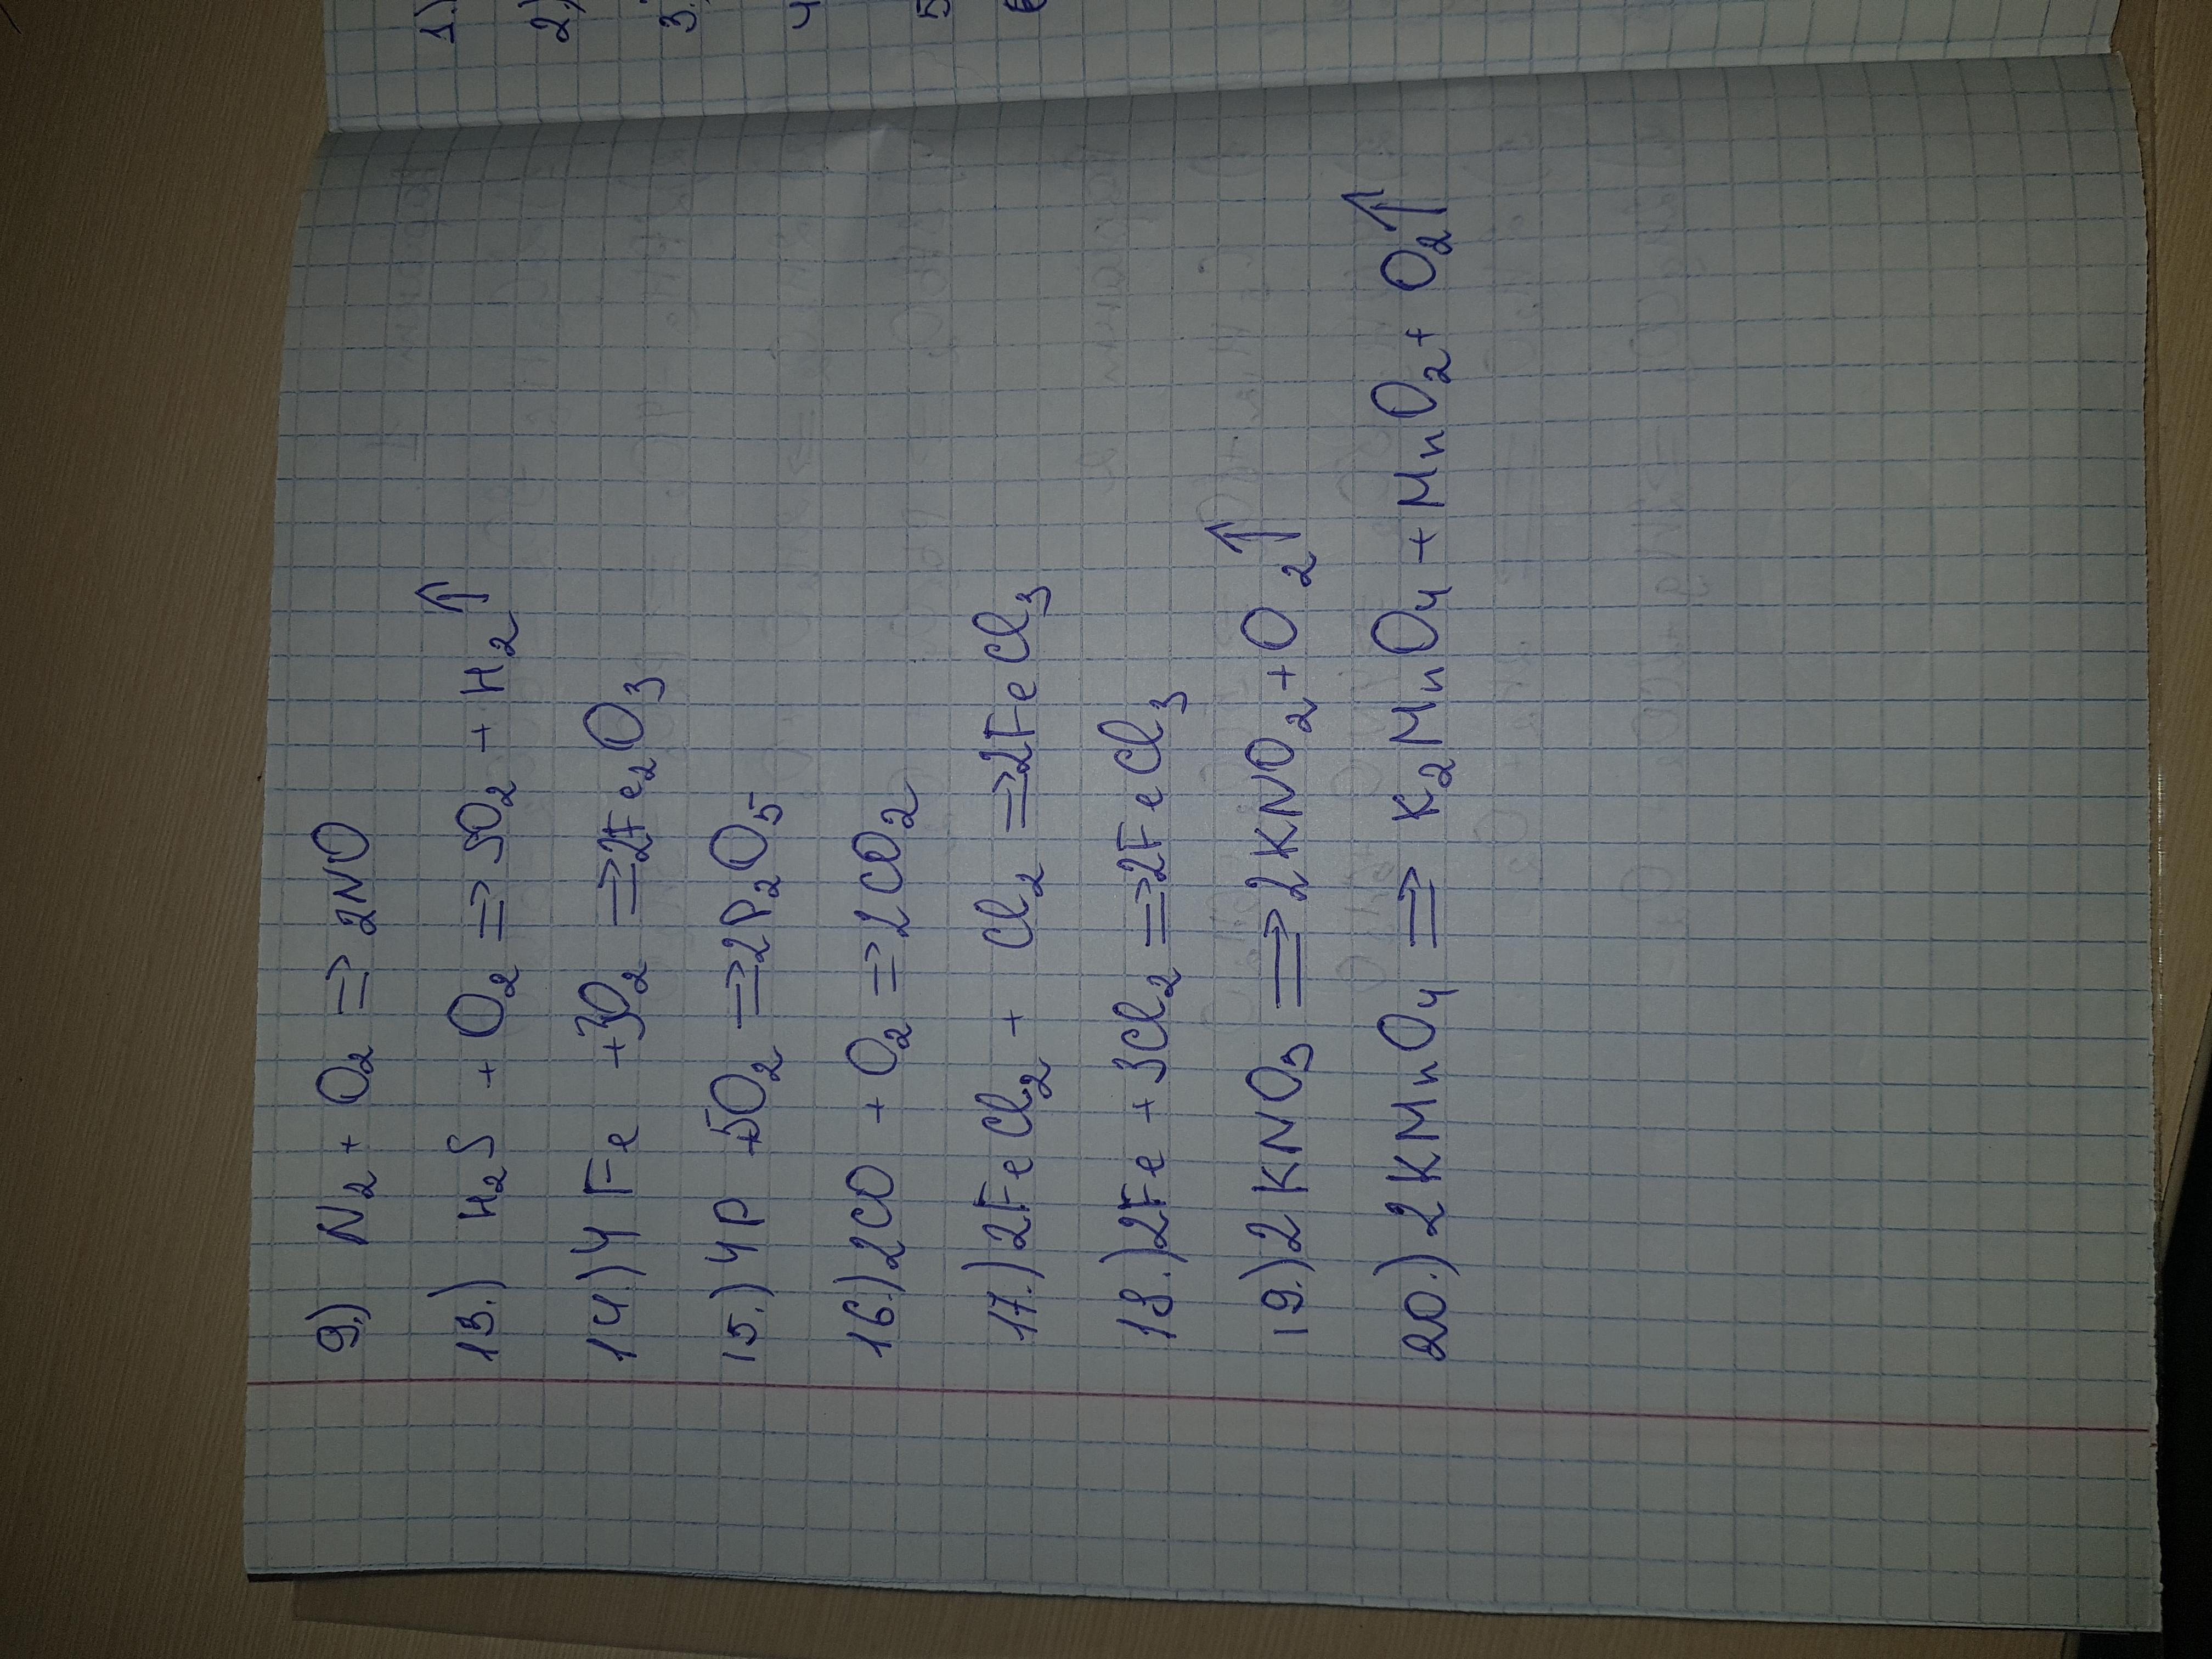 9.) N₂ + O₂ ⇒ 2NO
13.) H₂S + O₂ ⇒ SO₂ + H₂↑
14.) 4Fe + 3O₂ ⇒ 2Fe₂O₃
15.) 4P + 5O₂ ⇒ 2P₂O₅
16.) 2CO + O₂ ⇒ 2CO₂
17.) 2FeCl₂ + Cl₂ ⇒ 2FeCl₃
18.) 2Fe + 3Cl₂ ⇒ 2FeCl₃
19.) 2KNO₃ ⇒ 2KNO₂ + O₂↑
20.) 2KMnO₄ ⇒ K₂MnO₄ + MnO₂ + O₂↑
1.)
2.)
3.)
4
5